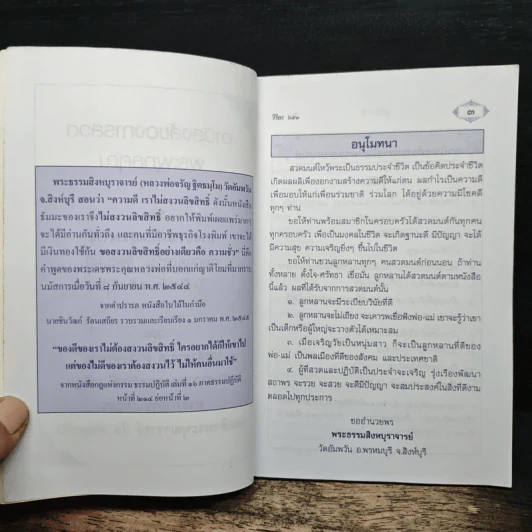 พระธรรมสิงหบุราจารย์ (หลวงพ่อจรัญ ฐิตธมฺโม) วัดอัมพวัน
จ.สิงห์บุรี สอนว่า "ความดี เราไม่สงวนลิขสิทธิ์ ดังนั้นหนังสือ
ธัมมะของเราจึงไม่สงวนลิขสิทธิ์ อยากให้พิมพ์เผยแพร่มากๆ
จะได้มีอ่านกันทั่วถึง และคนที่มีอาชีพธุรกิจโรงพิมพ์ เขาจะได้
มีเงินทองใช้กัน ขอสงวนลิขสิทธิ์อย่างเดียวคือ ความชั่ว" นี่คือ
คำพูดของพระเดชพระคุณหลวงพ่อที่บอกแก่ญาติโยมที่มากราบ
นมัสการเมื่อวันที่ ๘ กันยายน พ.ศ. ๒๕๔๔
จากคำปรารภ หนังสือใบไม้ในกำมือ
นายชินวัฒก์ รัตนเสถียร รวบรวมและเรียบเรียง ๑ มกราคม พ.ศ. ๒๕๔๕
"ของดีของเราไม่ต้องสงวนลิขสิทธิ์ ใครอยากได้ก็ให้เขาไป
แต่ของไม่ดีของเราต้องสงวนไว้ ไม่ให้คนอื่นมาใช้"
จากหนังสือกฎแห่งกรรม ธรรมปฏิบัติ เล่มที่ ๑๖ ภาคธรรมปฏิบัติ
หน้าที่ ๒๑๔ ย่อหน้าที่ ๒
๓
อนุโมทนา
สวดมนต์ไหว้พระเป็นธรรมประจำชีวิต เป็นข้อคิดประจำชีวิต
เกิดผลผลิเพื่องอกงามสร้างความดีให้แก่ตน ผลกำไรเป็นความดี
เพื่อมอบให้แก่เพื่อนร่วมชาติ ร่วมโลก ได้อยู่ด้วยความมีโชคดี
ทุกๆ ท่าน
ขอให้ท่านพร้อมสมาชิกในครอบครัวได้สวดมนต์กันทุกคน
ทุกครอบครัว เพื่อเป็นมงคลในชีวิต จะเกิดฐานะดี มีปัญญา จะได้
มีความสุข ความเจริญยิ่งๆ ขึ้นไปในชีวิต
ขอให้ท่านชวนลูกหลานทุกๆ คนสวดมนต์ก่อนนอน ถ้าท่าน
ทั้งหลาย ตั้งใจ-ศรัทธา เชื่อมั่น ลูกหลานได้สวดมนต์ตามหนังสือ
นี้แล้ว ผลที่ได้รับจากการสวดมนต์นั้น
๑. ลูกหลานจะมีระเบียบวินัยที่ดี
๒. ลูกหลานจะไม่เถียง จะเคารพเชื่อฟังพ่อ-แม่ เขาจะรู้ว่าเขา
เป็นเด็กหรือผู้ใหญ่จะวางตัวได้เหมาะสม
๓. เมื่อเจริญวัยเป็นหนุ่มสาว ก็จะเป็นลูกหลานที่ดีของ
พ่อ-แม่ เป็นพลเมืองที่ดีของสังคม และประเทศชาติ
๔. ผู้ที่สวดและปฏิบัติเป็นประจำจะเจริญ รุ่งเรืองพัฒนา
สถาพร จะรวย จะสวย จะดีมีปัญญา จะสมประสงค์ในสิ่งที่ดีงาม
ตลอดไปทุกประการ
ขออำนวยพร
พระธรรมสิงหบุราจารย์
วัดอัมพวัน อ.พรหมบุรี จ.สิงห์บุรี